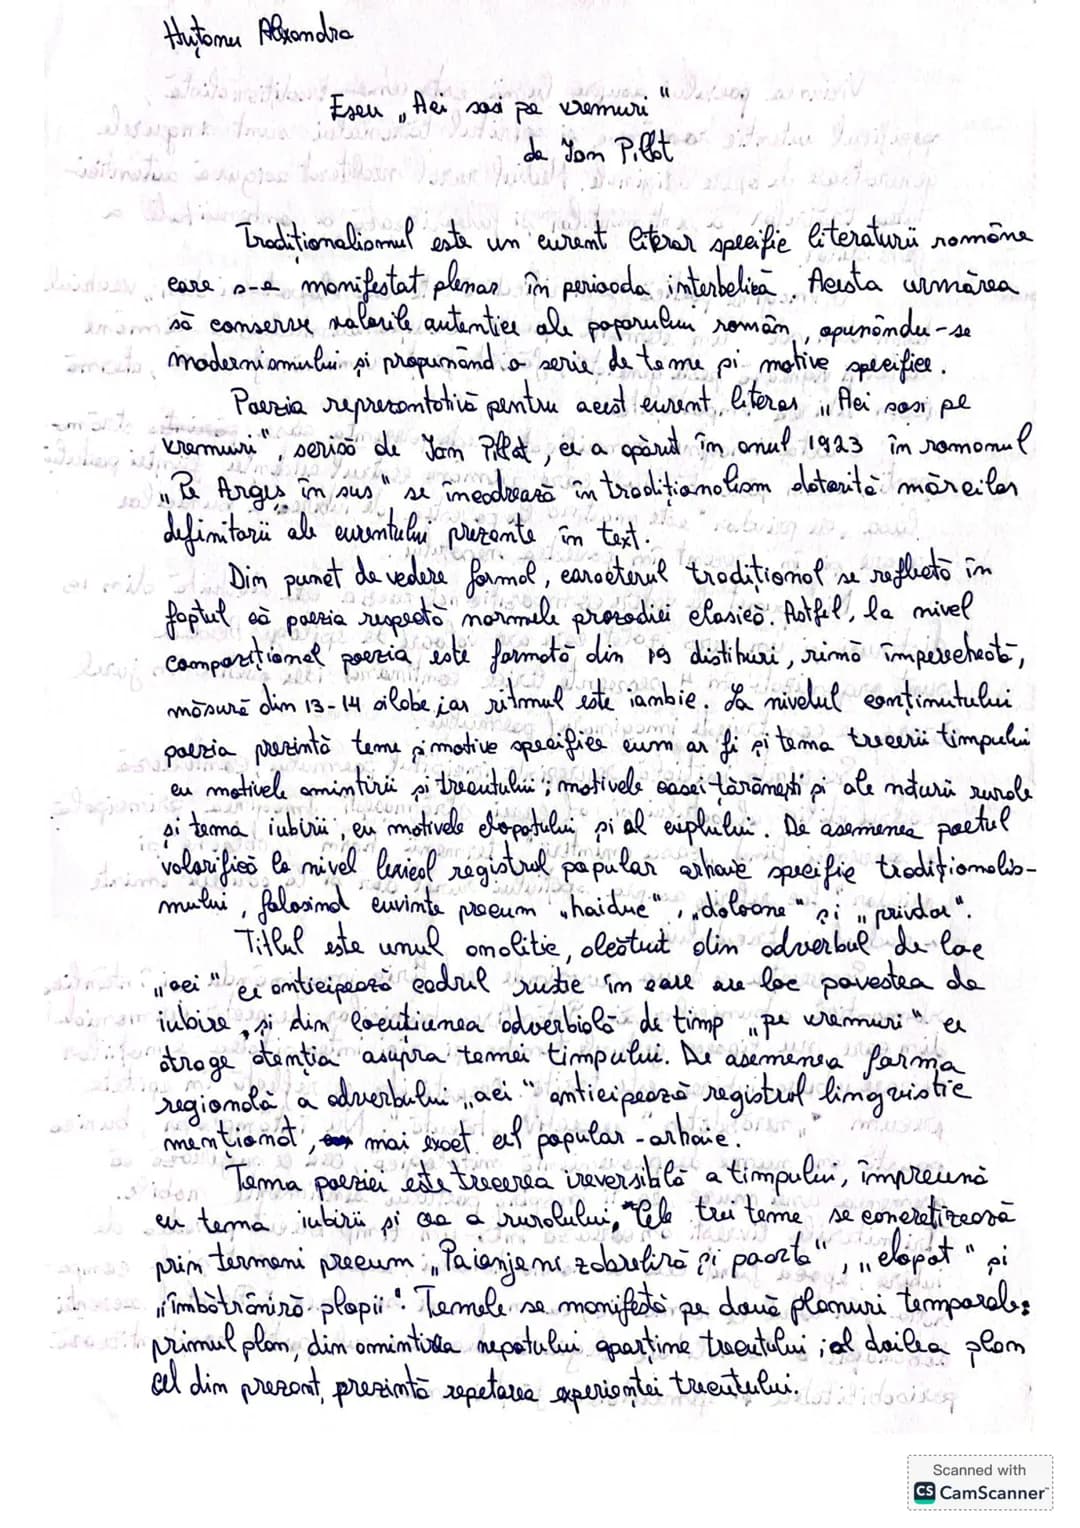 Huțanu Alexandra
Eseu „Aci sosi pe vremuri"
de Ion Pillat
Tradiționalismul este un curent literar specific literaturii române
care s-a manifestat plenar în perioada interbelică. Acesta urmărea
să conserve valorile autentice ale poporului român, opunându-se
modernismului și propunând o serie de teme și motive specifice.
Poezia reprezentativă pentru acest curent literar „Aci sosi pe
vremuri", scrisă de Ion Pillat, ce a apărut în anul 1923 în romanul
„Pe Argeș în sus" se încadrează în tradiționalism datorită mărcilor
definitorii ale curentului prezente în text.
Din punct de vedere formal, caracterul tradițional se reflectă în
faptul că poezia respectă normele prozodiei clasice. Astfel, la nivel
compozițional poezia este formată din 19 distihuri, rimă împerecheată,
măsură din 13-14 silabe iar ritmul este iambic. La nivelul conținutului
poezia prezintă teme și motive specifice cum ar fi și tema trecerii timpului
cu motivele amintirii și trecutului; motivele casei țărănești și ale naturii rurale
și tema iubirii, cu motivele clopotului și al cuplului. De asemenea poetul
valorifică la nivel lexical registrul popular arhaic specific tradiționalis-
mului, folosind cuvinte precum „haiduc", „doloane" și „pridvor".
Titlul este unul analitic, alcătuit din adverbul de loc
„aci" ce anticipează cadrul rustic în care are loc povestea de
iubire, și din locuțiunea adverbială de timp „pe vremuri" ce
atrage atenția asupra temei timpului. De asemenea forma
regională a adverbului „aci" anticipează registrul lingvistic
menționat, mai exact cel popular-arhaic.
Tema poeziei este trecerea ireversibilă a timpului, împreună
cu tema iubirii și cea a ruralului. Cele trei teme se concretizează
prin termeni precum „Paianjeni zăbreliră și poarta", „clopot" și
„îmbătrâniră plopii". Temele se manifestă pe două planuri temporale:
primul plan, din amintirea nepotului aparține trecutului; al doilea plan
cel din prezent, prezintă repetarea experienței trecutului.
Scanned with
CS CamScanner